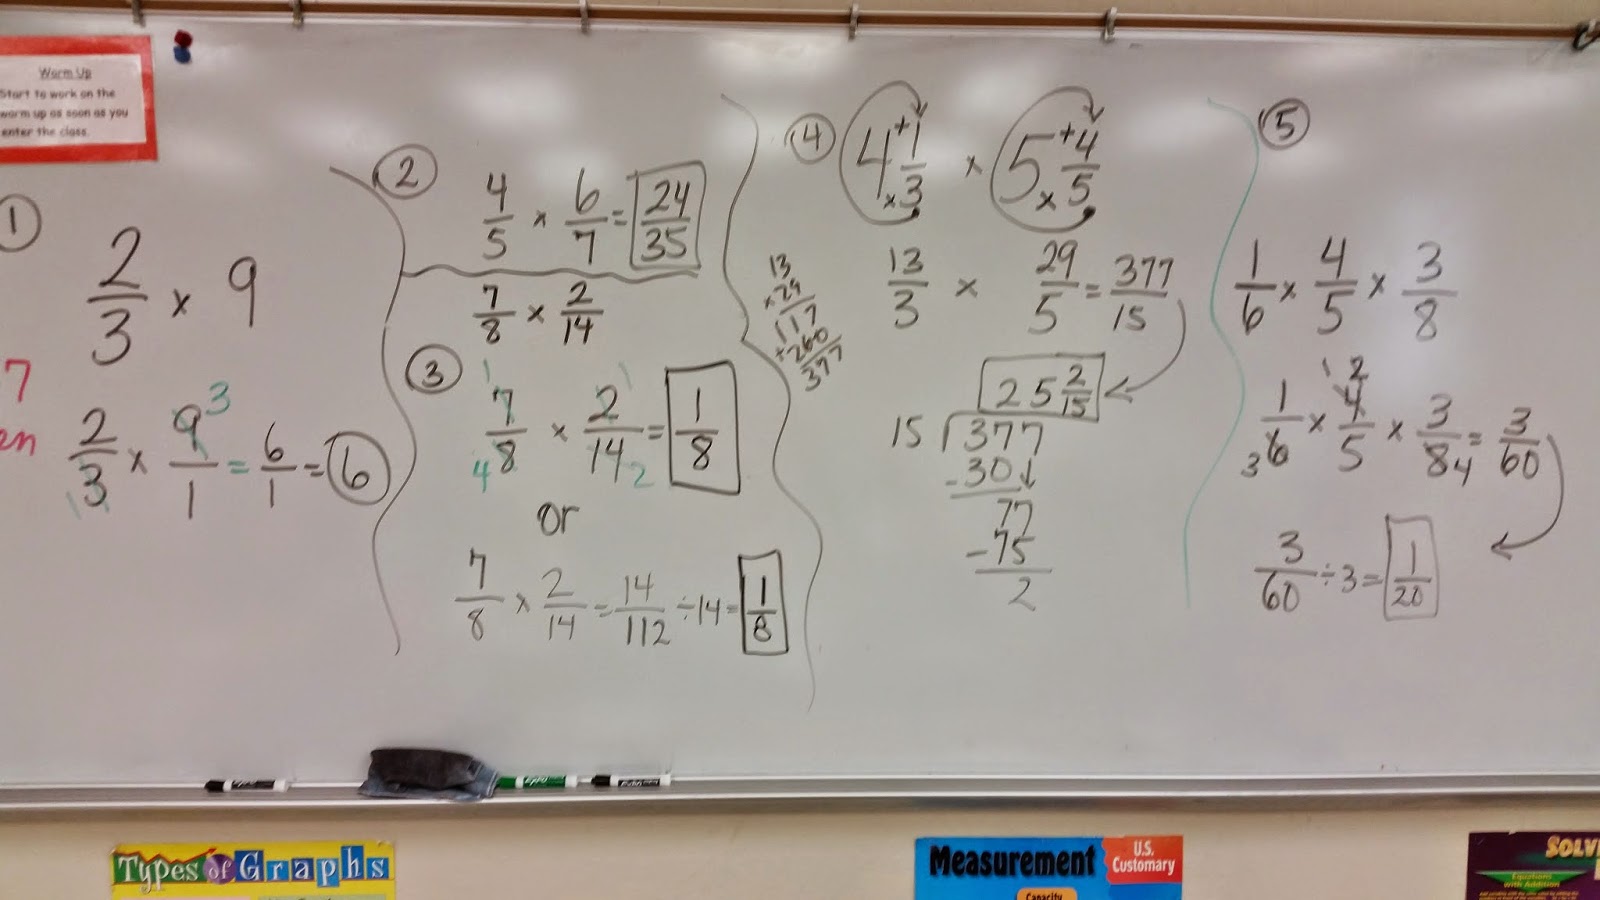 Warm Up
Start to work on the
warm up as soon as you
enter the class.
1
2/3 × 9
7
en
2/3 × 9/1 = 6/1 = 6
3
1
2
4/5 × 6/7 = 24/35
7/8 × 2/14
3
1 1
7/8 × 2/14 = 1/8
4 2
or
7/8 × 2/14 = 14/112 ÷ 14 = 1/8
4
4 + 1/3 × 5 + 4/5
× ×
13/3 × 29/5 = 377/15
13
×29
117
+260
377
25 2/15
15 377
-30
77
-75
2
5
1/6 × 4/5 × 3/8
1 2
1/6 × 4/5 × 3/8 = 3/60
3 4
3/60 ÷ 3 = 1/20
Expo
Types of Graphs
Measurement
U.S.
Customary
Capacity
SOLV
Equations
with Addition